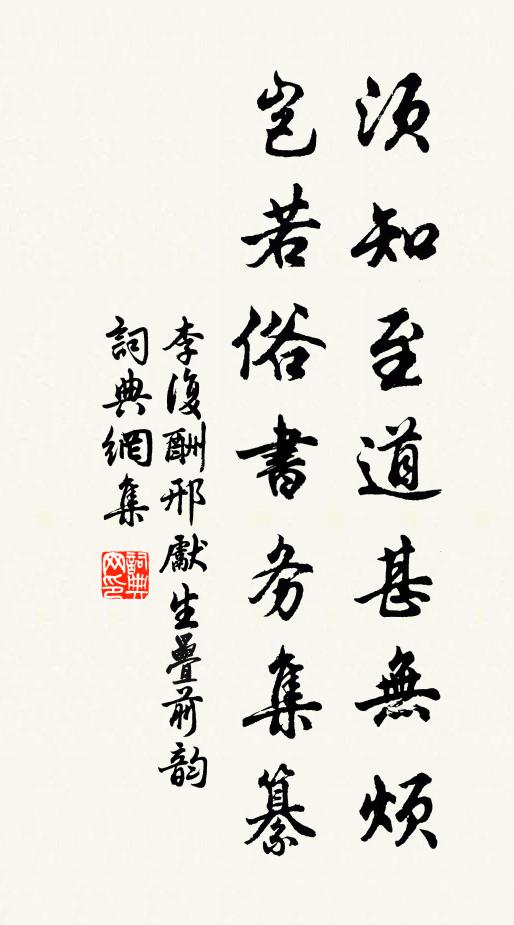 须知至道甚無烦
岂若俗書务集纂
李復酬邢獻生疊前韵
詞典網集
詞典网印